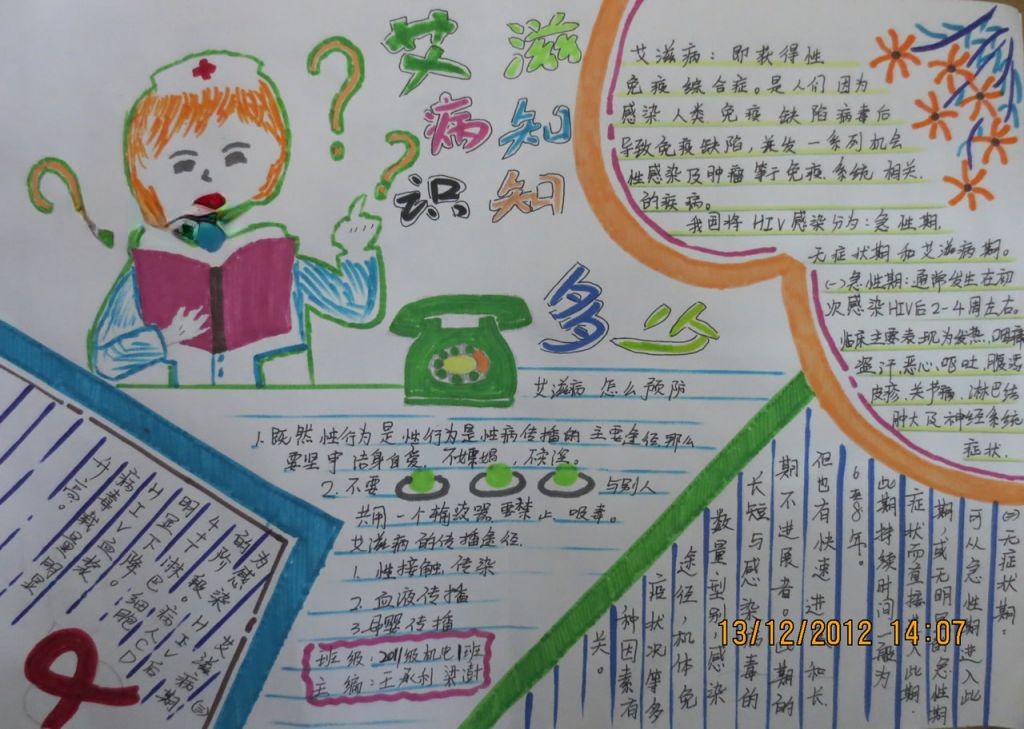 艾滋
病知
识知
多少
艾滋病：即获得性
免疫综合症。是人们因为
感染人类免疫缺陷病毒后
导致免疫缺陷，并发一系列机会
性感染及肿瘤等于免疫系统相关
的疾病。
我国将HIV感染分为：急性期
无症状期和艾滋病期。
(一)急性期：通常发生在初
次感染HIV后2-4周左右。
临床主要表现为发热，咽痛
盗汗恶心呕吐腹泻
皮疹.关节痛.淋巴结
肿大及神经系统
症状.
艾滋病怎么预防
1.既然性行为是性行为是性病传播的主要途径那么
要坚守洁身自爱，不嫖娼，
2.不要与别人
共用一个输液器要禁止吸毒。
艾滋病的传播途径.
1.性接触传染
2.血液传播
3.母婴传播
班级：2011级机电1班
主编：王承利 梁澍
(二)无症状期：
可从急性期进入此
期，或无明显的急性期
症状而直接进入此期.
此期持续时间一般为
6至8年。
但也有快速进和长
期不进展者。此期的
长短与感染病毒的
数量，型别，感染
途径，机体免
疫状况等多
种因素有
关。
(三)艾滋病期：
为感染HIV后
的4阶段。病人CD
明显淋巴细胞
HIV血浆
病毒载量明显
升高。
13/12/2012 14:07